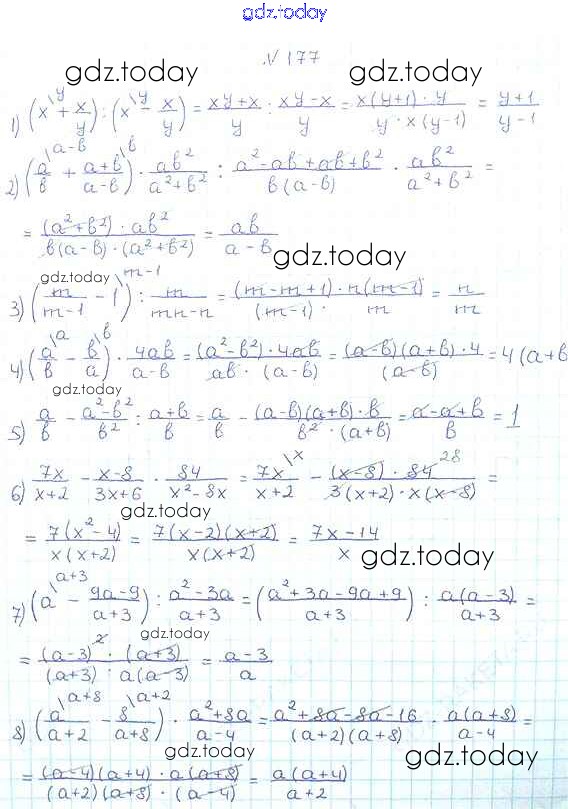 gdz.today
№ 177
gdz.today gdz.today
1) (x^{\y} + x/y) : (x^{\y} - x/y) = (xy+x)/y : (xy-x)/y = (x(y+1) · y)/(y · x(y-1)) = (y+1)/(y-1)
2) (a/b^{\a-b} + (a+b)/(a-b)^{\b}) · ab²/(a²+b²) : (a²-ab+ab+b²)/(b(a-b)) · ab²/(a²+b²) =
= ((a²+b²) · ab²)/(b(a-b) · (a²+b²)) = ab/(a-b)
gdz.today
gdz.today
3) (m/(m-1) - 1^{\m-1}) : m/(mn-n) = ((m-m+1) · n(m-1))/((m-1) · m) = n/m
4) (a/b^{\a} - b/a^{\b}) · 4ab/(a-b) = ((a²-b²) · 4ab)/(ab · (a-b)) = ((a-b)(a+b) · 4)/(a-b) = 4(a+b
gdz.today
5) a/b - (a²-b²)/b² : (a+b)/b = a/b - ((a-b)(a+b) · b)/(b² · (a+b)) = (a-a+b)/b = 1
6) 7x/(x+2) - (x-8)/(3x+6) · 84/(x²-8x) = 7x/(x+2)^{\x} - ((x-8) · 84 28)/(3(x+2) · x(x-8)) =
gdz.today
= 7(x²-4)/(x(x+2)) = 7(x-2)(x+2)/(x(x+2)) = (7x-14)/x
gdz.today
7) (a^{\a+3} - (9a-9)/(a+3)) : (a²-3a)/(a+3) = ((a²+3a-9a+9)/(a+3)) : a(a-3)/(a+3) =
gdz.today
= ((a-3)² · (a+3))/((a+3) · a(a-3)) = (a-3)/a
8) (a/(a+2)^{\a+8} - 8/(a+8)^{\a+2}) · (a²+8a)/(a-4) = (a²+8a-8a-16)/((a+2)(a+8)) · a(a+8)/(a-4) =
gdz.today gdz.today
= ((a-4)(a+4) · a(a+8))/((a+2)(a+8) · (a-4)) = a(a+4)/(a+2)